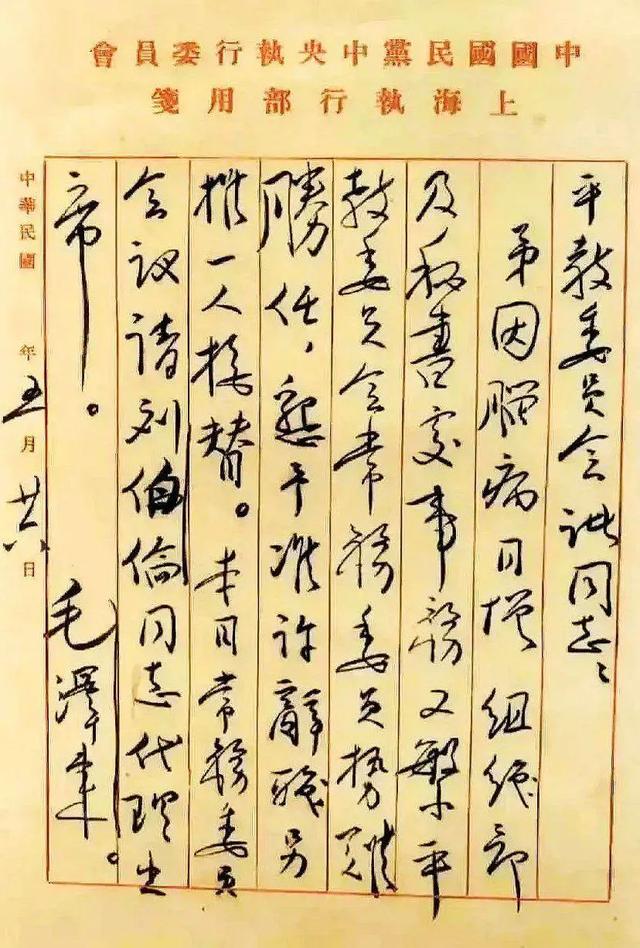 中國國民黨中央執行委員會
上海執行部用箋
平教委员会诸同志：
弟因腦病日增组织部
及秘書处事務又繁平
教委员会常務委员势难
勝任，懇予准许辭职另
推一人接替。本日常務委员
会议请刘伯倫同志代理出
席。
毛澤東。
中華民國 年五月廿六日